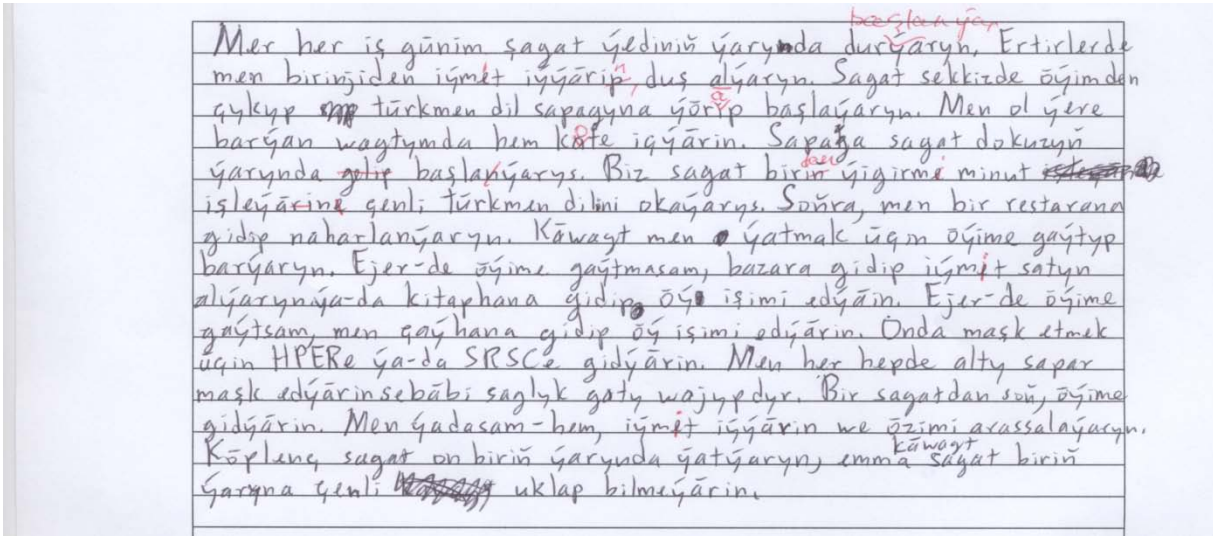 başlanýar
Mer her iş günim, sagat ýediniň ýarynda durýaryn. Ertirlerde
men birinjiden iýmit iýýärin, duş alýaryn. Sagat sekkizde öýimden
çykyp türkmen dil sapagyna ýöräp başlaýaryn. Men ol ýere
barýan wagtymda hem kofe içýärin. Sapaga sagat dokuzyň
ýarynda gelip başlanýarys. Biz sagat birin den ýigirmi minut
işleýärine çenli türkmen dilini okaýarys. Soňra, men bir restarana
gidip naharlanýaryn. Käwagt men ýatmak üçin öýime gaýtyp
barýaryn. Ejer-de öýime gaýtmasam, bazara gidip iýmit satyn
alýaryn ýa-da kitaphana gidip öý işimi edýäin. Ejer-de öýime
gaýtsam, men çaýhana gidip öý işimi edýärin. Onda maşk etmek
üçin HPERe ýa-da SRSCe gidýärin. Men her hepde alty sapar
maşk edýärin sebäbi saglyk gaty wajypdyr. Bir sagatdan soň, öýime
gidýärin. Men ýadasam-hem, iýmit iýýärin we özimi arassalaýaryn.
Köplenç, sagat on biriň ýarynda ýatýaryn, emma käwagt sagat biriň
ýaryna çenli uklap bilmeýärin.